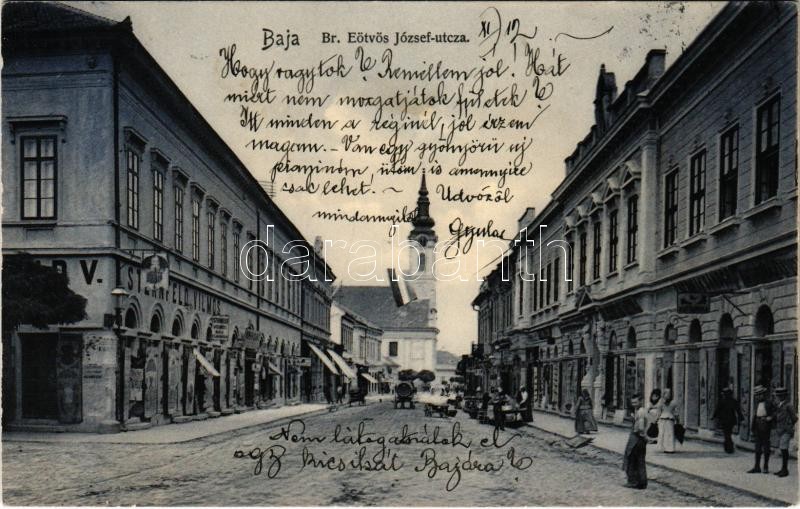 Baja Br. Eötvös József-utcza. XI/12
Hogy vagytok? Remélem jól! Hát
miért nem mozgatjátok fületek?
Itt minden a réginél, jól érzem
magam. - Van egy gyönyörű új
pianinóm, ütöm is amennyire
csak lehet. - Üdvözöl
mindannyit
Gyula
darabanth.com
STERNFELD VILMOS
Nem látogatnátok el
egy kicsikát Bajára?